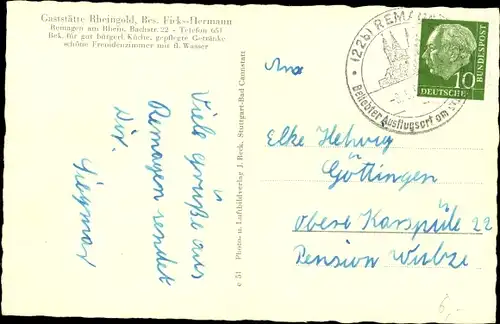 Gaststätte Rheingold, Bes. Ficks-Hermann
Remagen am Rhein, Bachstr. 22 - Telefon 651
Bek. für gut bürgerl. Küche, gepflegte Getränke
schöne Fremdenzimmer mit fl. Wasser
Viele Grüße aus
Remagen sendet
Dir
Siegmar
c 51 Photo- u. Luftbildverlag J. Beck, Stuttgart-Bad Cannstatt
(22b) REMAGEN
Beliebter Ausflugsort am
DEUTSCHE BUNDESPOST
10
An
Elke Helwig
Göttingen
Obere Karspüle 22
Pension Wulze